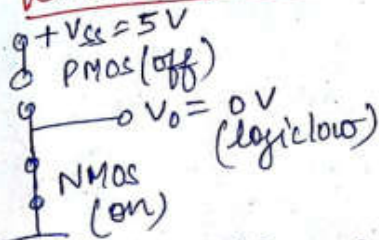 +Vss = 5V
PMOS (off)
Vo = 0V
(logic low)
NMOS
(on)